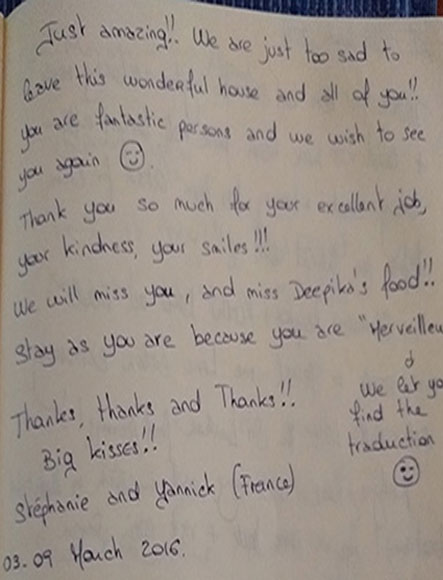 Just amazing!! We are just too sad to
leave this wonderful house and all of you!!
you are fantastic persons and we wish to see
you again ☺.
Thank you so much for your excellent job,
your kindness, your smiles!!!
We will miss you, and miss Deepika's food!!
Stay as you are because you are "Merveilleu
we let yo
find the
traduction
☺
Thanks, thanks and Thanks!!
Big kisses!!
Stéphanie and Yannick (France)
03.09 March 2016.